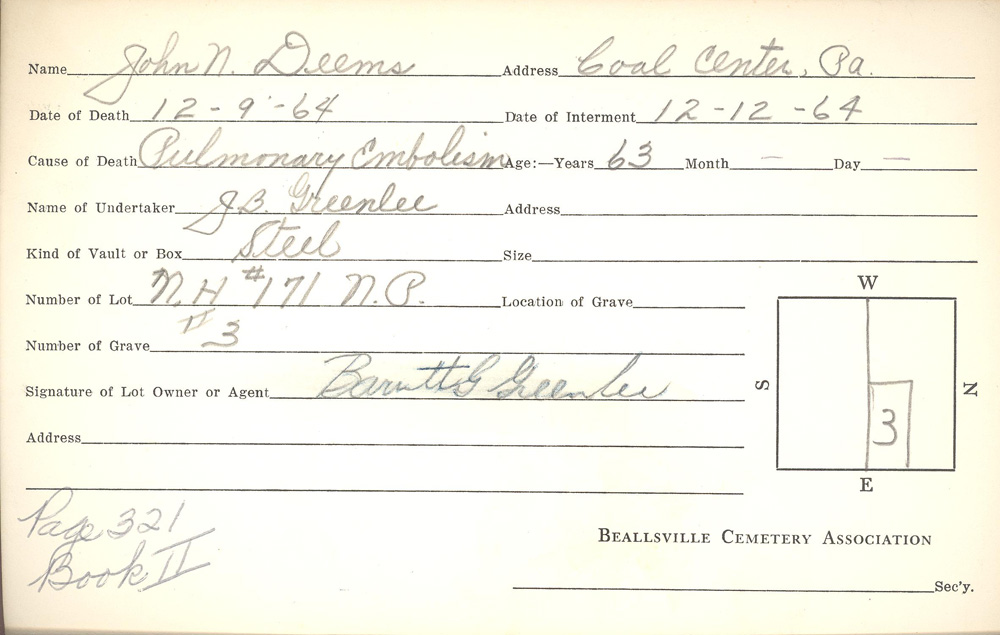 Name John N. Deems Address Coal Center, Pa.
Date of Death 12-9-64 Date of Interment 12-12-64
Cause of Death Pulmonary Embolism Age:—Years 63 Month — Day —
Name of Undertaker J.B. Greenlee Address
Kind of Vault or Box Steel Size
Number of Lot N.H #171 N.P. Location of Grave
W
Number of Grave #3
S N
Signature of Lot Owner or Agent G Greenlee
3
Address
E
Page 321
Book II
BEALLSVILLE CEMETERY ASSOCIATION
Sec'y.